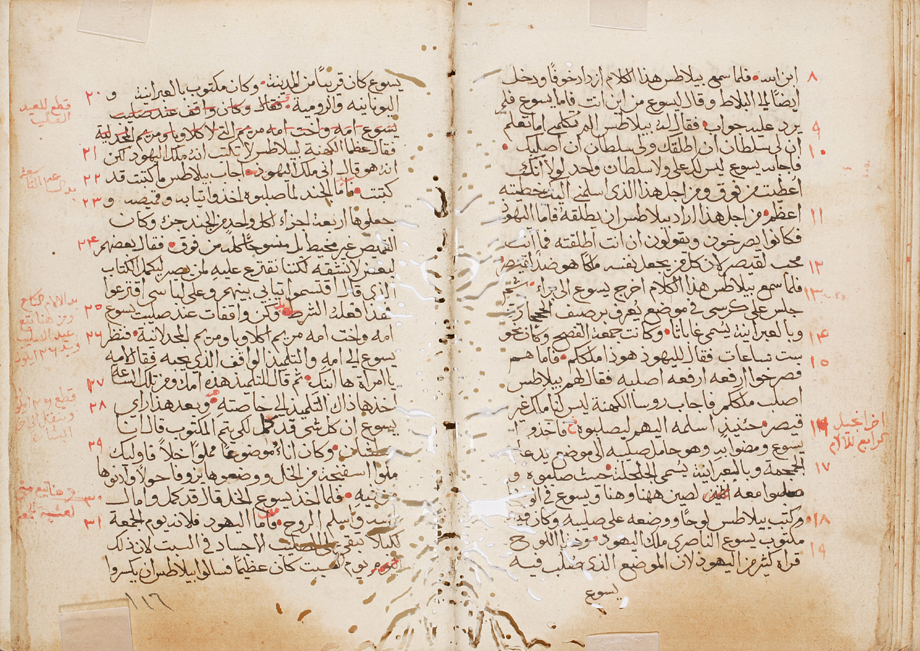 ٨ ابن الله فلما سمع بيلاطس هذا الكلام ازداد خوفا ودخل
ايضا الى البلاط وقال ليسوع من اين انت فاما يسوع فلم
٩ يرد عليه جواب فقال له بيلاطس الم تكلمني اما تعلم
١٠ ان لي سلطان ان اطلقك ولي سلطان ان اصلبك
فاجابه يسوع ليس لك علي ولا سلطان واحد لولا انك
اعطيت من فوق ومن اجل هذا الذي اسلمني اليك خطيته
١١ اعظم من اجل هذا اراد بيلاطس ان يطلقه فاما اليهود
فكانوا يصرخون ويقولون ان انت اطلقته فما انت
١٢ محب لقيصر لان كل من يجعل نفسه ملكا هو ضد لقيصر
١٣ فلما سمع بيلاطس هذا الكلام اخرج يسوع الى
جلس على كرسي في موضع يعرف برصيف الحجارة
١٤ وبالعبرانية يسمى غاباثا وكانت جمعة الفصح وكان نحو
١٥ ست ساعات فقال لليهود هوذا ملككم فاما هم
فصرخوا ارفعه ارفعه اصلبه فقال لهم بيلاطس
اصلب ملككم فاجاب روسا الكهنة ليس لنا ملك غير
١٦ قيصر حينئذ اسلمه اليهم ليصلبوه
يسوع ومضوا به وهو حامل صليبه الى موضع يدعى
١٧ الجمجمة وبالعبرانية يسمى الجلجلة حيث صلبوه و
صلبوا معه لصين ههنا وهنا ويسوع في
١٨ وكتب بيلاطس لوحا ووضعه على صليبه وكان فيه
١٩ مكتوب يسوع الناصري ملك اليهود وهذا اللوح
قراه كثير من اليهود لان الموضع الذي صلب فيه
يسوع
يسوع كان قريبا من المدينة وكان مكتوب بالعبرانية و
٢٠ اليونانية والرومية
يسوع امه واخت امه مريم التي لاكلاوبا ومريم المجدلية
٢١ فقال عظما الكهنة لبيلاطس لا تكتب انه ملك اليهود لكن
٢٢ انه هو قال اني ملك اليهود اجاب بيلاطس ما كتبت قد
٢٣ كتبت فاما الجند لما صلبوه اخذوا ثيابه وقميصه و
جعلوها اربعة اجزاء لكل واحد من الجند جزء وكان
٢٤ القميص غير مخيط بل منسوجا كله من فوق فقال بعضهم
لبعض لا نشقه لكننا نقترع عليه لمن يصير ليكمل الكتاب
الذي قال اقتسموا ثيابي بينهم وعلى لباسي اقترعوا
٢٥ هذا فعله الشرط وكن واقفات عند صليب يسوع
٢٦ امه واخت امه مريم اكلاوبا ومريم المجدلانية فنظر
يسوع الى امه والتلميذ الواقف الذي يحبه فقال لامه
٢٧ يا امراة ها ابنك ثم قال للتلميذ هذه امك ومن تلك الساعة
٢٨ اخذها ذاك التلميذ الى خاصته وبعد هذا راى
يسوع ان كل شي قد كمل لكي يتم المكتوب قال انا
٢٩ عطشان وكان انا موضوعا مملوا خلا فاوليك
ملوا اسفنجة من الخل ووضعوها بزوفا حولا وادنوها
٣٠ من فيه فلما اخذ يسوع الخل قال قد كمل وامال
٣١ راسه واسلم الروح فاما اليهود فلانه يوم الجمعة
لكيلا تبقى على الصليب الاجساد في السبت لان ذلك
يوم السبت كان عظيما فسالوا بيلاطس ان يكسروا
١١٦